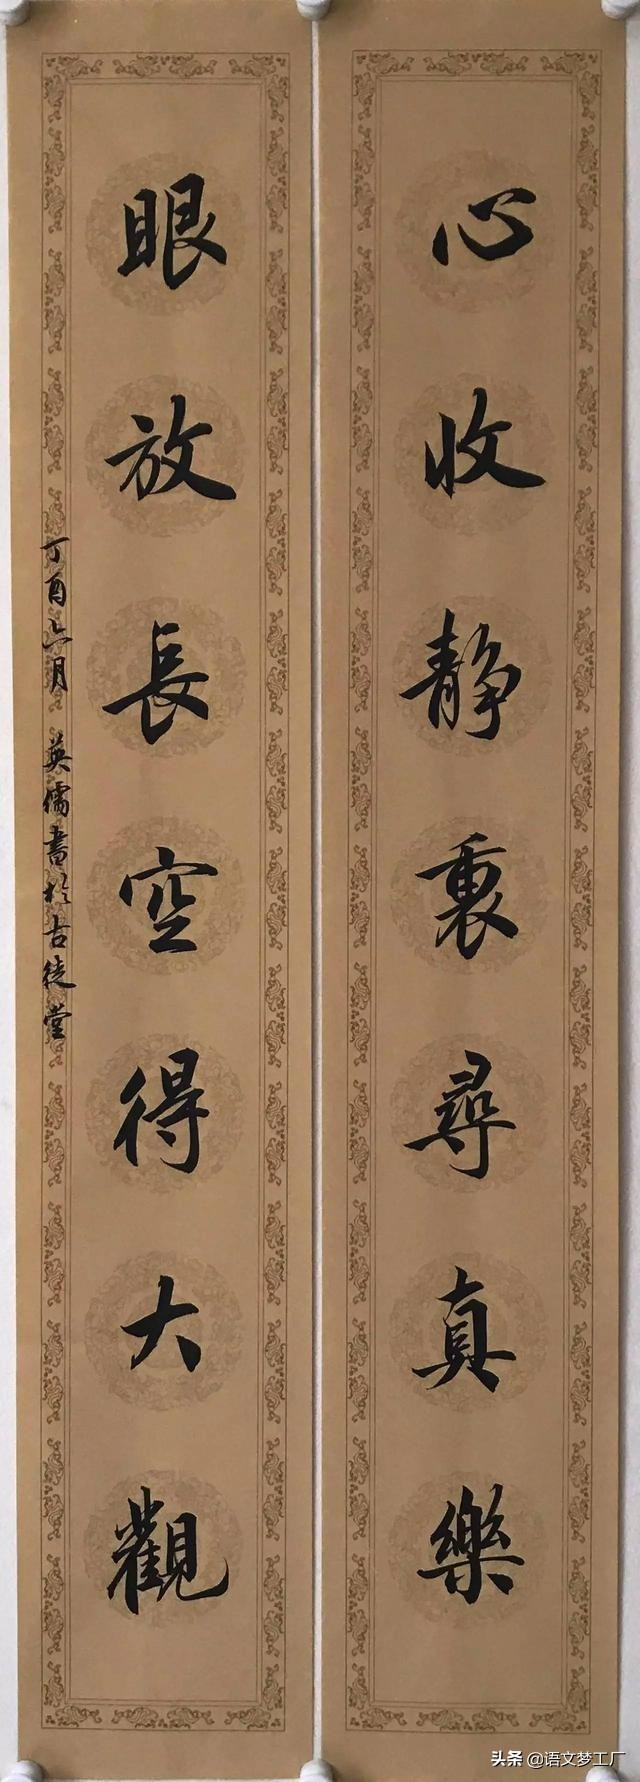 心收静裏尋真樂
眼放長空得大觀
丁酉六月 英儒書於古徒堂
头条 @语文梦工厂